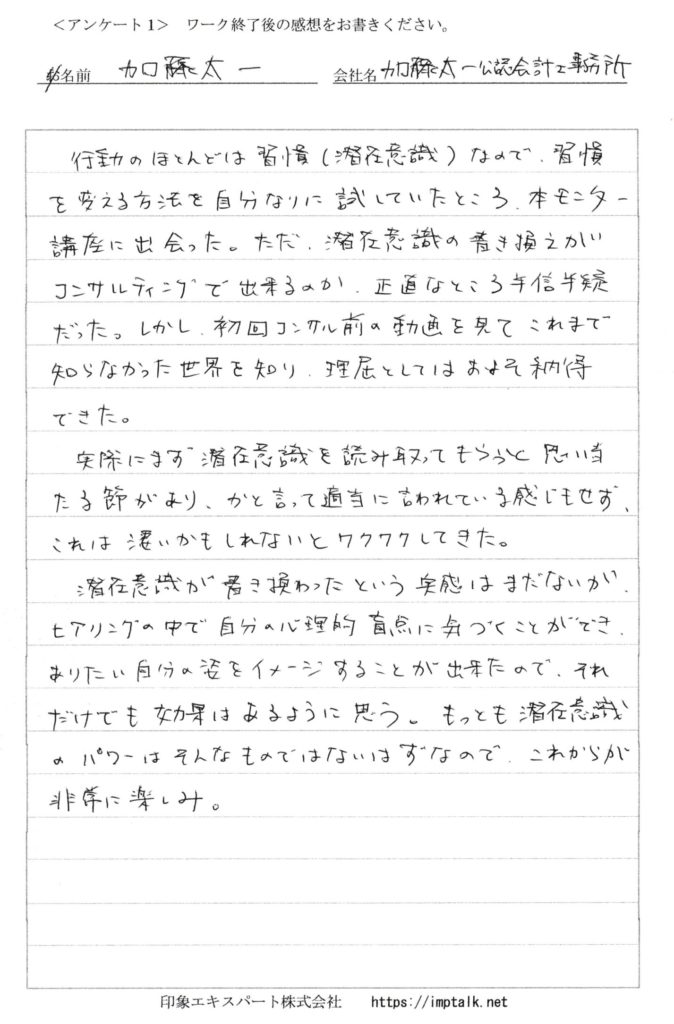 ＜アンケート1＞　ワーク終了後の感想をお書きください。
お名前　加藤太一　会社名 加藤太一公認会計士事務所
行動のほとんどは習慣(潜在意識)なので、習慣
を変える方法を自分なりに試していたところ、本モニター
講座に出会った。ただ、潜在意識の書き換えが
コンサルティングで出来るのか、正直なところ半信半疑
だった。しかし、初回コンサル前の動画を見てこれまで
知らなかった世界を知り、理屈としてはおよそ納得
できた。
実際にまず潜在意識を読み取ってもらうと思い当
たる節があり、かと言って適当に言われている感じもせず、
これは凄いかもしれないとワクワクしてきた。
潜在意識が書き換わったという実感はまだないが、
ヒアリングの中で自分の心理的盲点に気づくことができ、
ありたい自分の姿をイメージすることが出来たので、それ
だけでも効果はあるように思う。もっとも潜在意識
のパワーはそんなものではないはずなので、これからが
非常に楽しみ。
印象エキスパート株式会社　https://imptalk.net